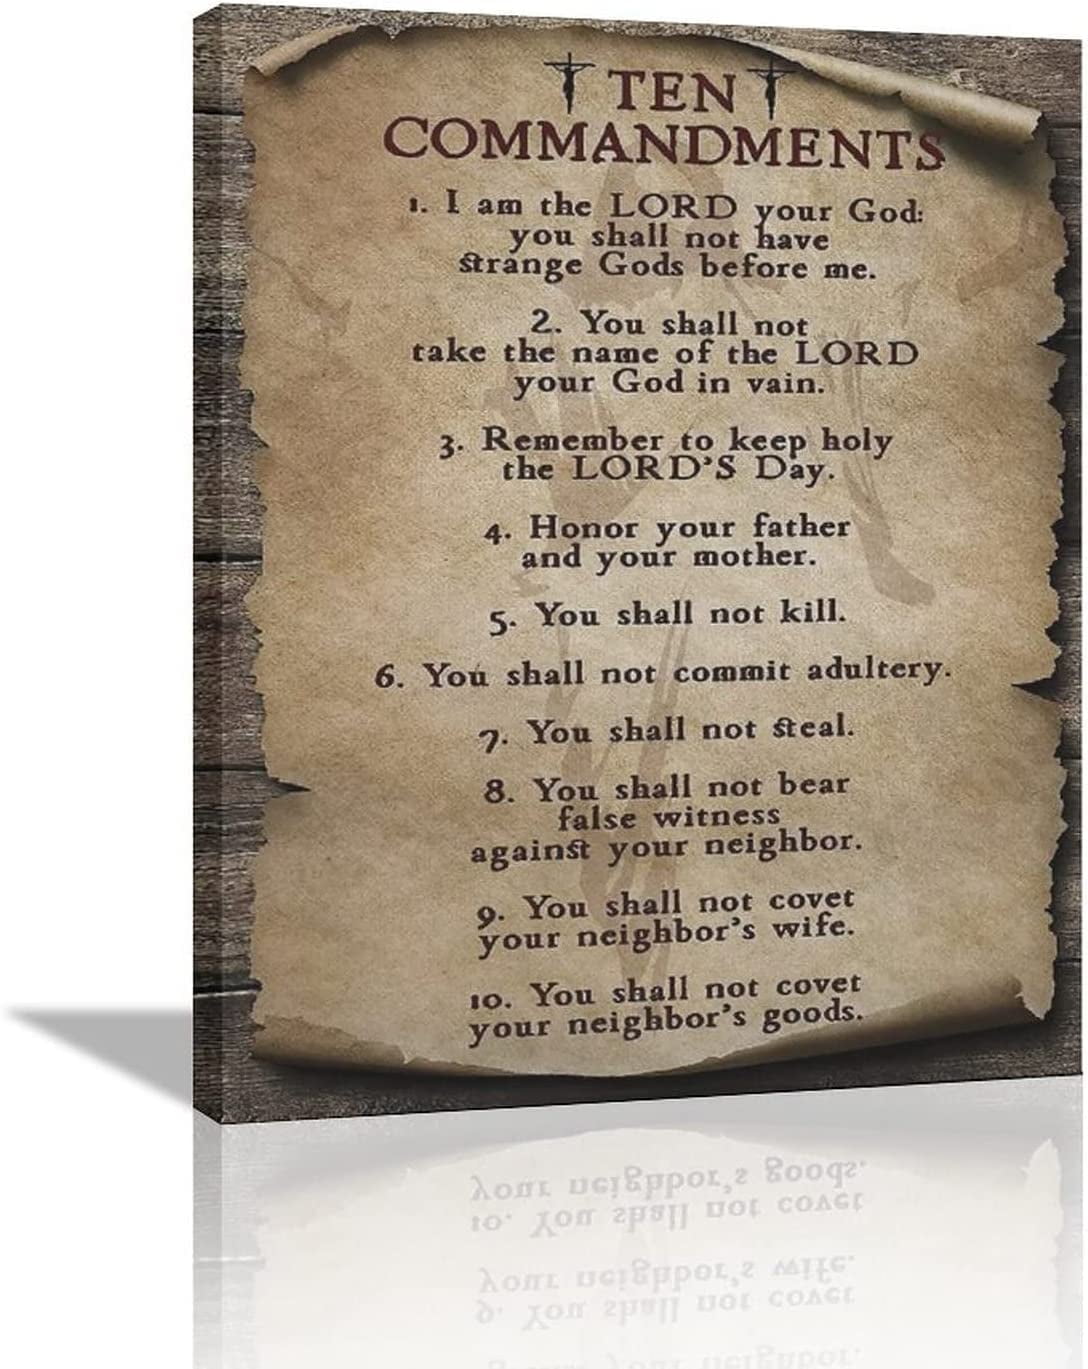 TEN
COMMANDMENTS
1. I am the LORD your God:
you shall not have
strange Gods before me.
2. You shall not
take the name of the LORD
your God in vain.
3. Remember to keep holy
the LORD'S Day.
4. Honor your father
and your mother.
5. You shall not kill.
6. You shall not commit adultery.
7. You shall not steal.
8. You shall not bear
false witness
against your neighbor.
9. You shall not covet
your neighbor's wife.
10. You shall not covet
your neighbor's goods.